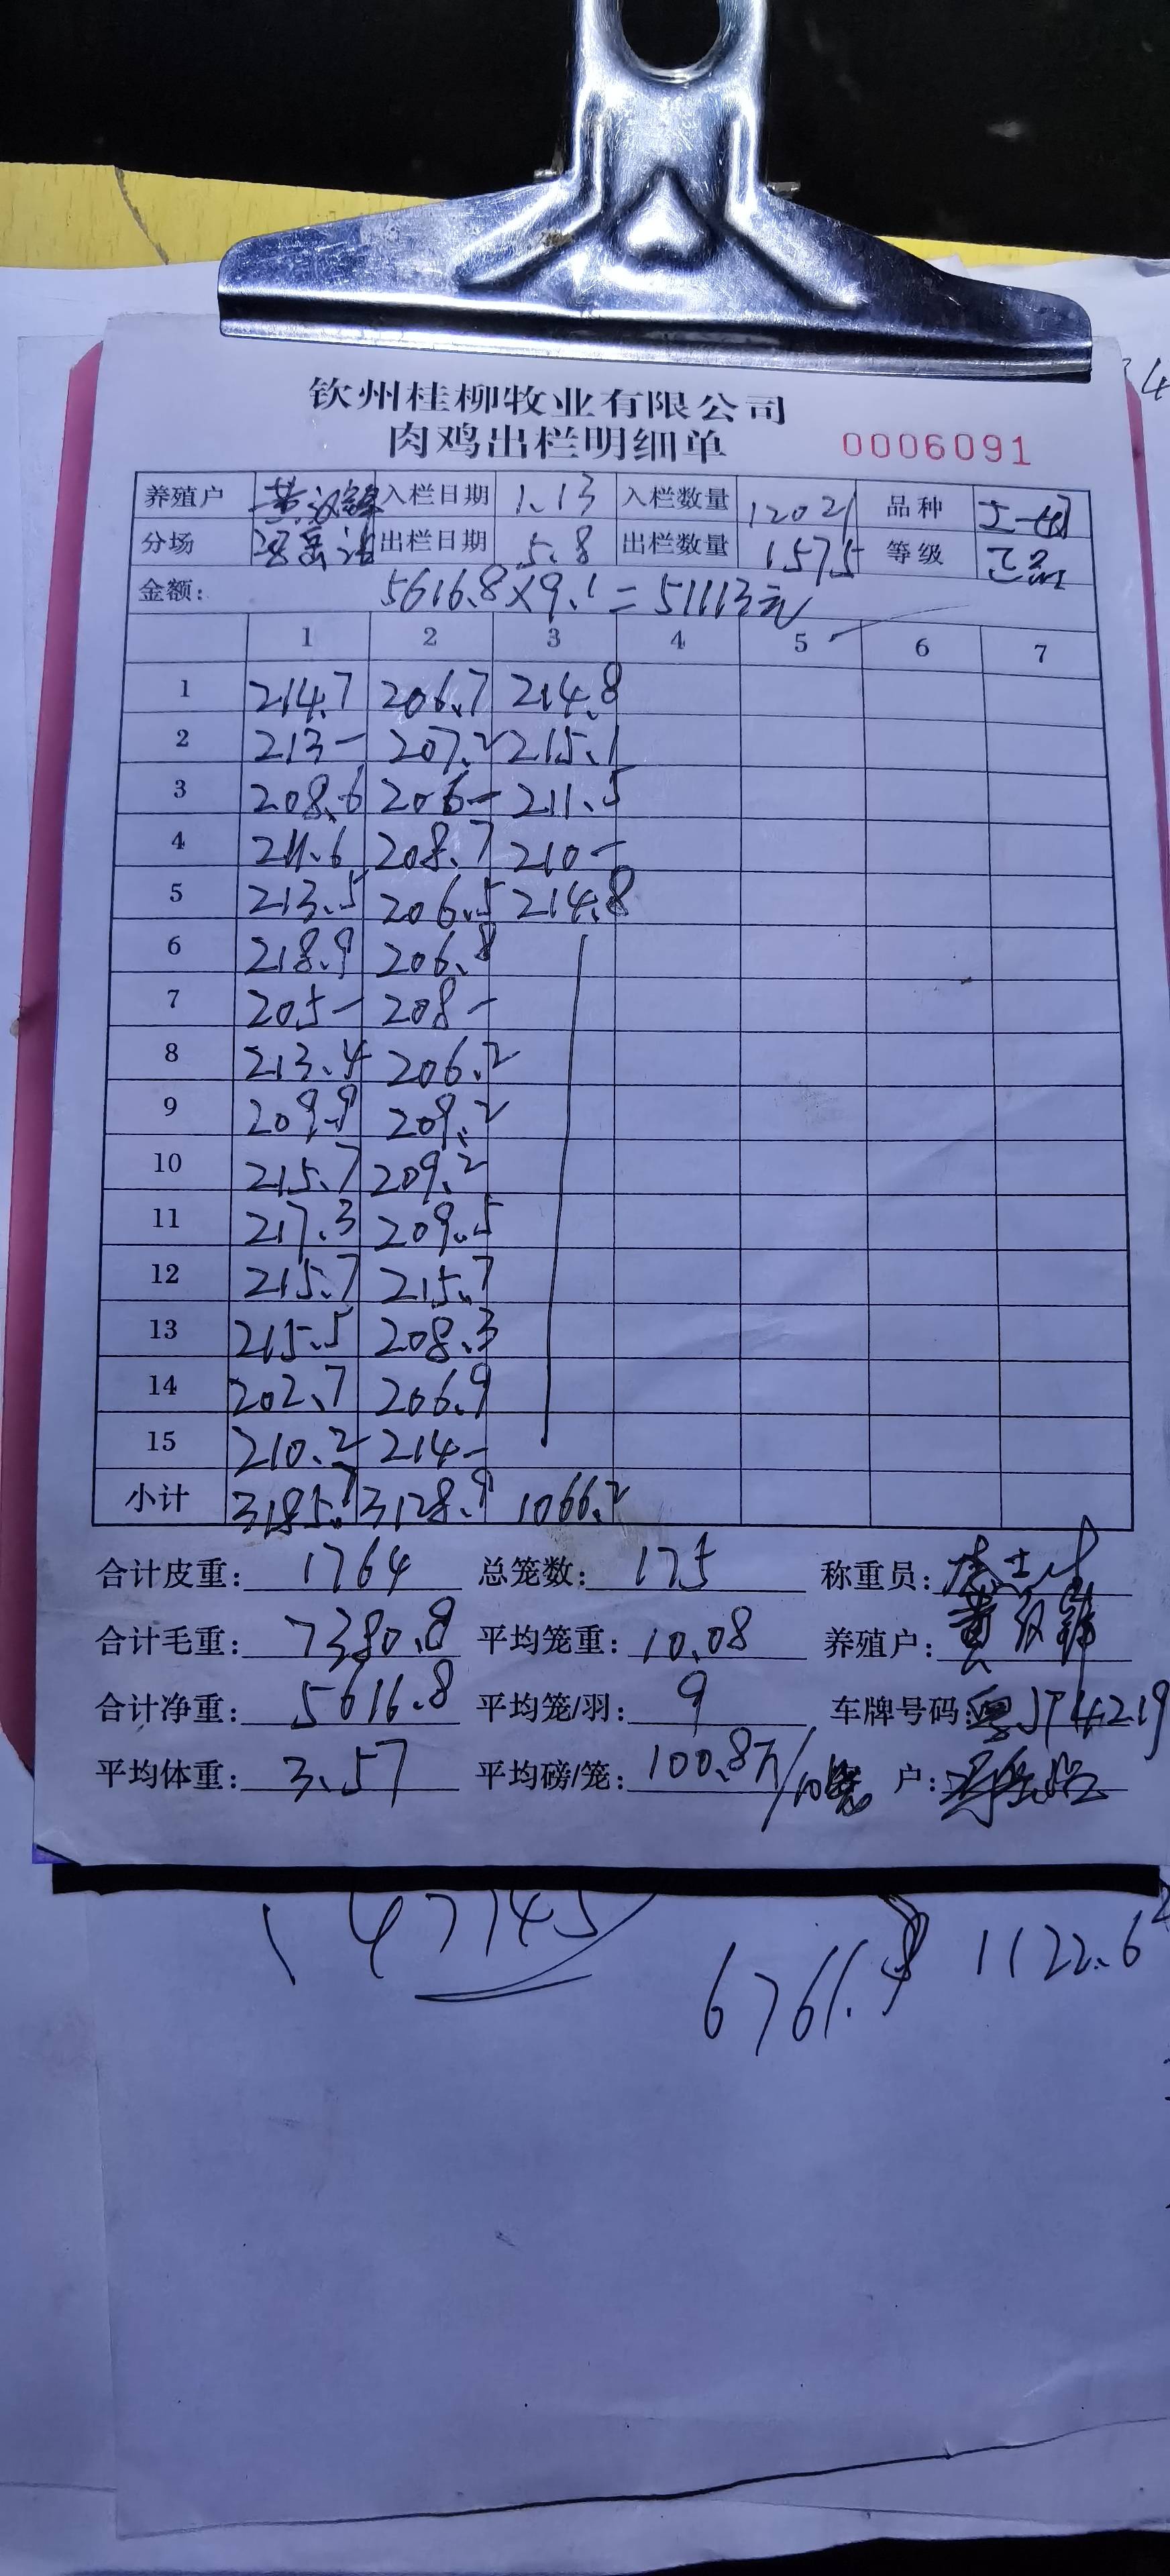 钦州桂柳牧业有限公司
肉鸡出栏明细单 0006091
养殖户 黄汉锋 入栏日期 1.13 入栏数量 12021 品种
分场 出栏日期 5.8 出栏数量 1575 等级 正品
金额: 5616.8×9.1=51113元
1 2 3 4 5 6 7
1 214.7 206.7 214.8
2 213- 207.2 215.1
3 208.6 206- 211.5
4 211.6 208.7 210-
5 213.5 206.5 214.8
6 218.9 206.8
7 205- 208-
8 213.4 206.2
9 209.9 209.2
10 215.7 209.2
11 217.3 209.5
12 215.7 215.7
13 215.5 208.3
14 202.7 206.9
15 210.2 214-
小计 3185.7 3128.9 1066.2
合计皮重: 1764 总笼数: 175 称重员:
合计毛重: 7380.8 平均笼重: 10.08 养殖户: 黄汉锋
合计净重: 5616.8 平均笼/羽: 9 车牌号码:
平均体重: 3.57 平均磅/笼: 100.8斤/10笼 户:
47745
6761.9 1122.6